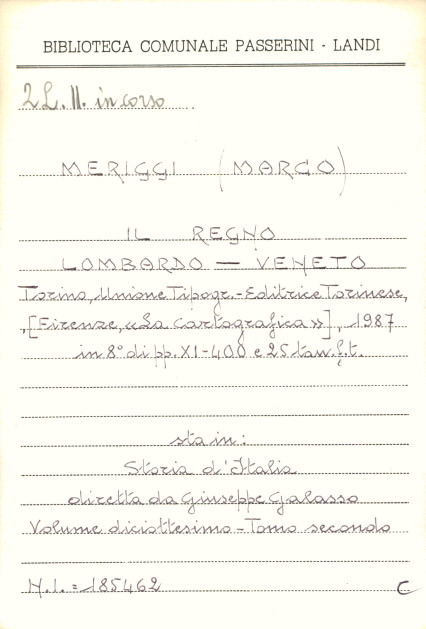 BIBLIOTECA COMUNALE PASSERINI - LANDI
2 L. II. in corso
MERIGGI (MARCO)
IL REGNO
LOMBARDO — VENETO
Torino, Unione Tipogr.-Editrice Torinese,
,[Firenze, «La cartografica»], 1987
in 8° di pp. XI-400 e 25 tav. f.t.
sta in:
Storia d'Italia
diretta da Giuseppe Galasso
Volume diciottesimo - Tomo secondo
N.I. = 185462 C